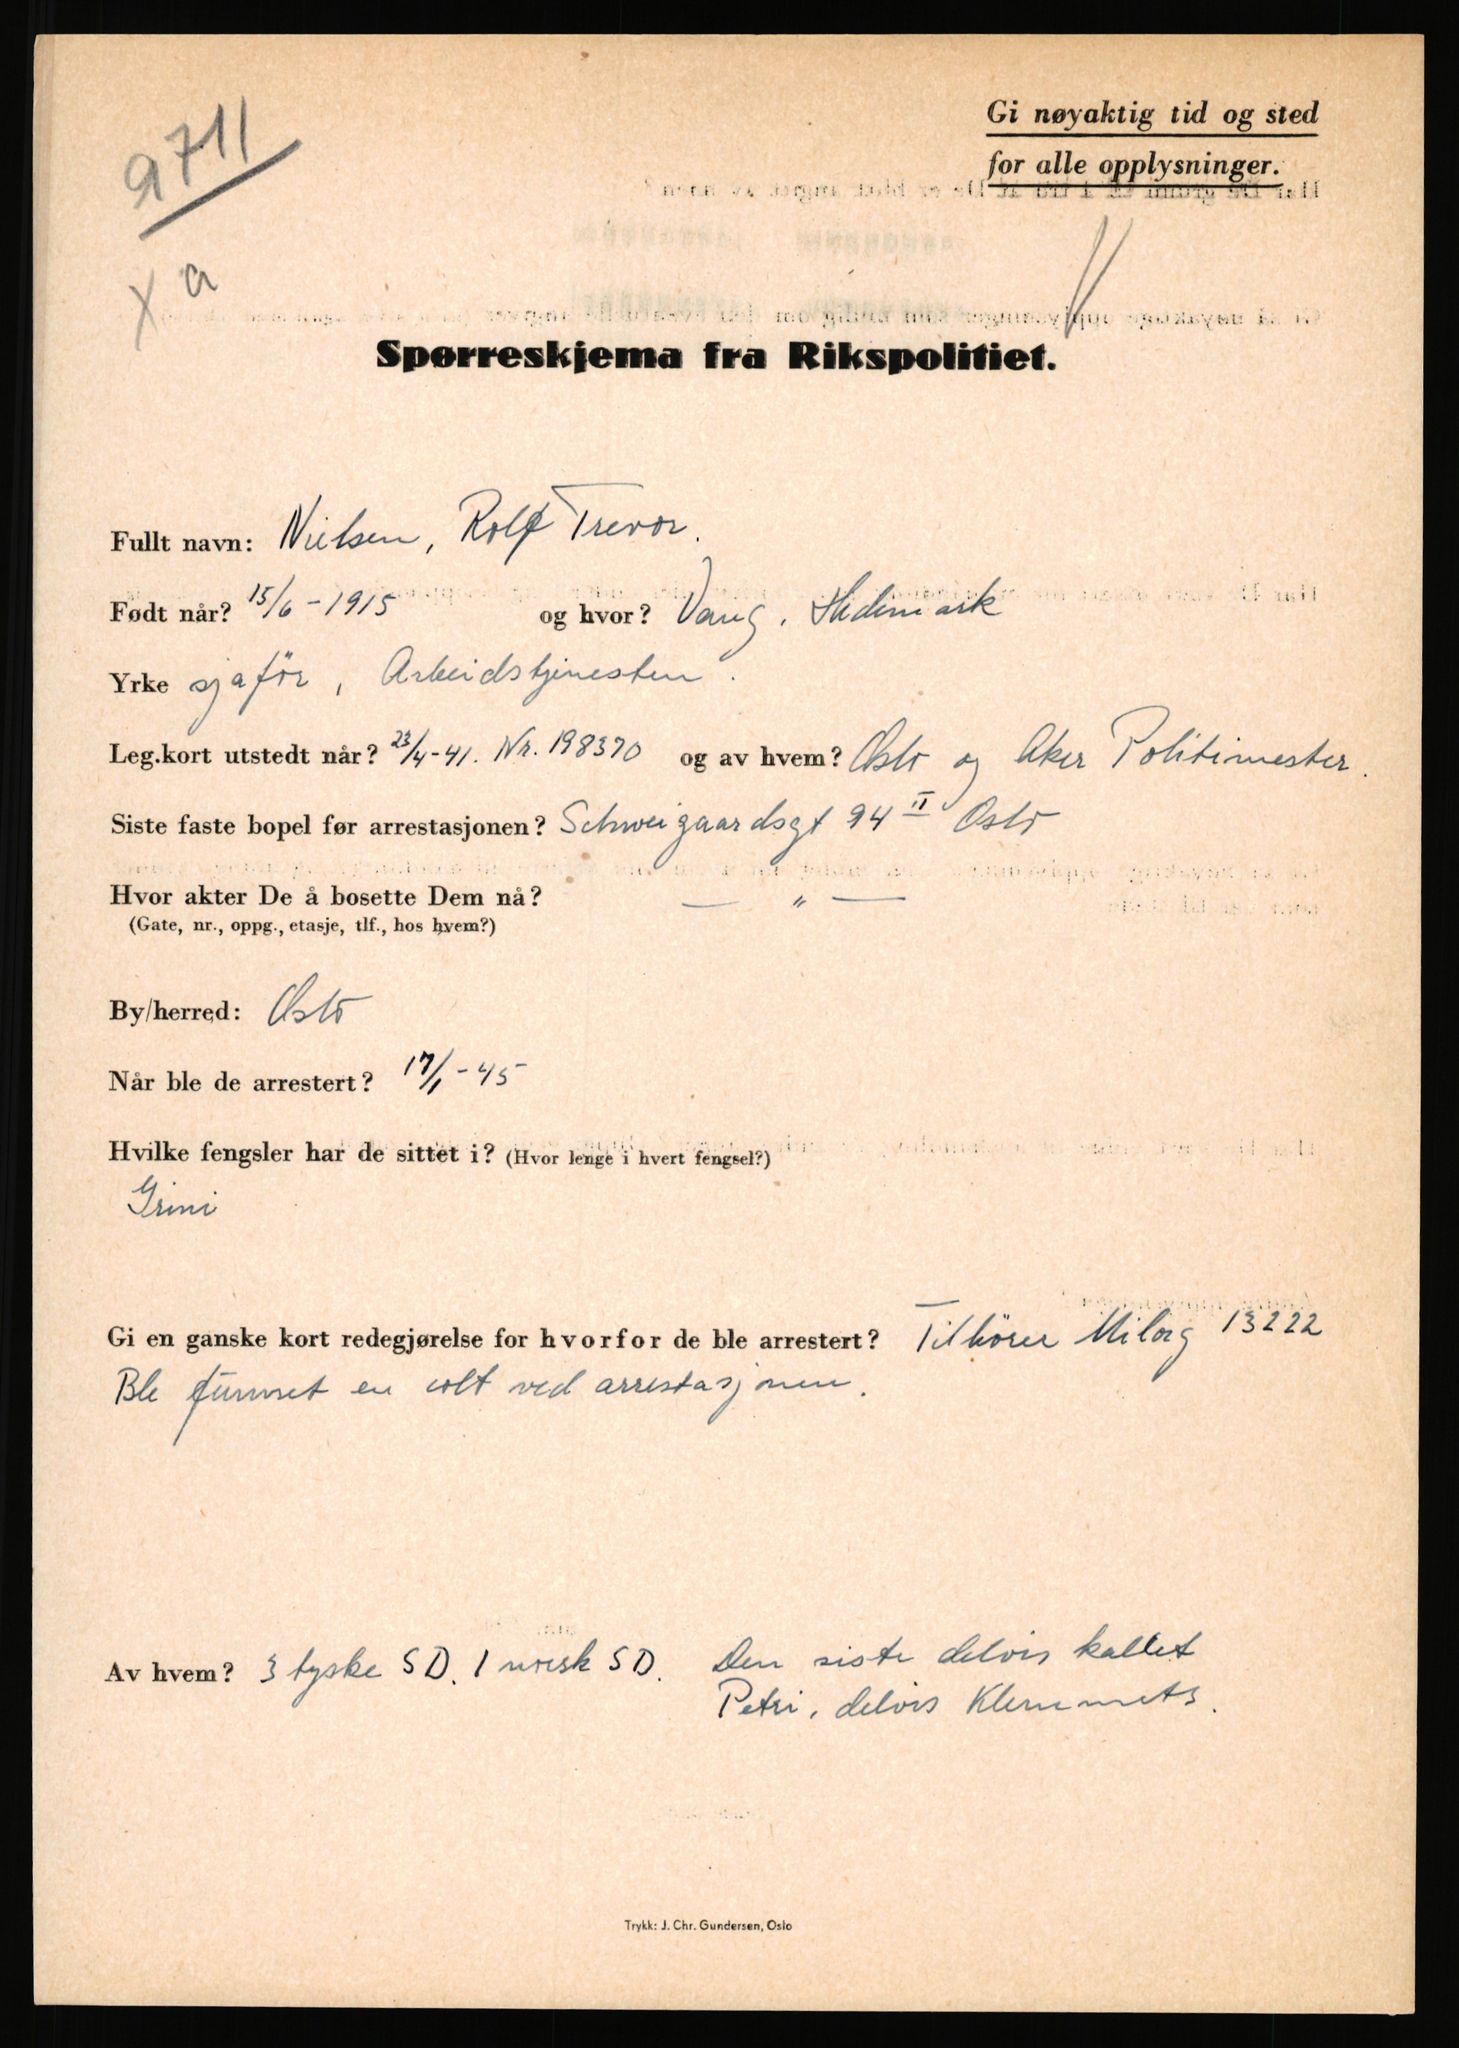 9711
x a
Gi nøyaktig tid og sted
for alle opplysninger.
Spørreskjema fra Rikspolitiet.
Fullt navn: Nielsen, Rolf Trevor.
Født når? 15/6-1915 og hvor? Vang, Hedemark
Yrke sjafør, Arbeidstjenesten.
Leg.kort utstedt når? 23/4-41. Nr. 198370 og av hvem? Oslo og Aker Politimester.
Siste faste bopel før arrestasjonen? Schweigaardsgt 94 II Oslo
Hvor akter De å bosette Dem nå? — " —
(Gate, nr., oppg., etasje, tlf., hos hvem?)
By/herred: Oslo
Når ble de arrestert? 17/1-45
Hvilke fengsler har de sittet i? (Hvor lenge i hvert fengsel?)
Grini
Gi en ganske kort redegjørelse for hvorfor de ble arrestert? Tilhører Milorg 13222
Ble funnet en colt ved arrestasjonen.
Av hvem? 3 tyske SD. 1 norsk SD. Den siste delvis kallet
Petri, delvis Klemmets.
Trykk: J. Chr. Gundersen, Oslo